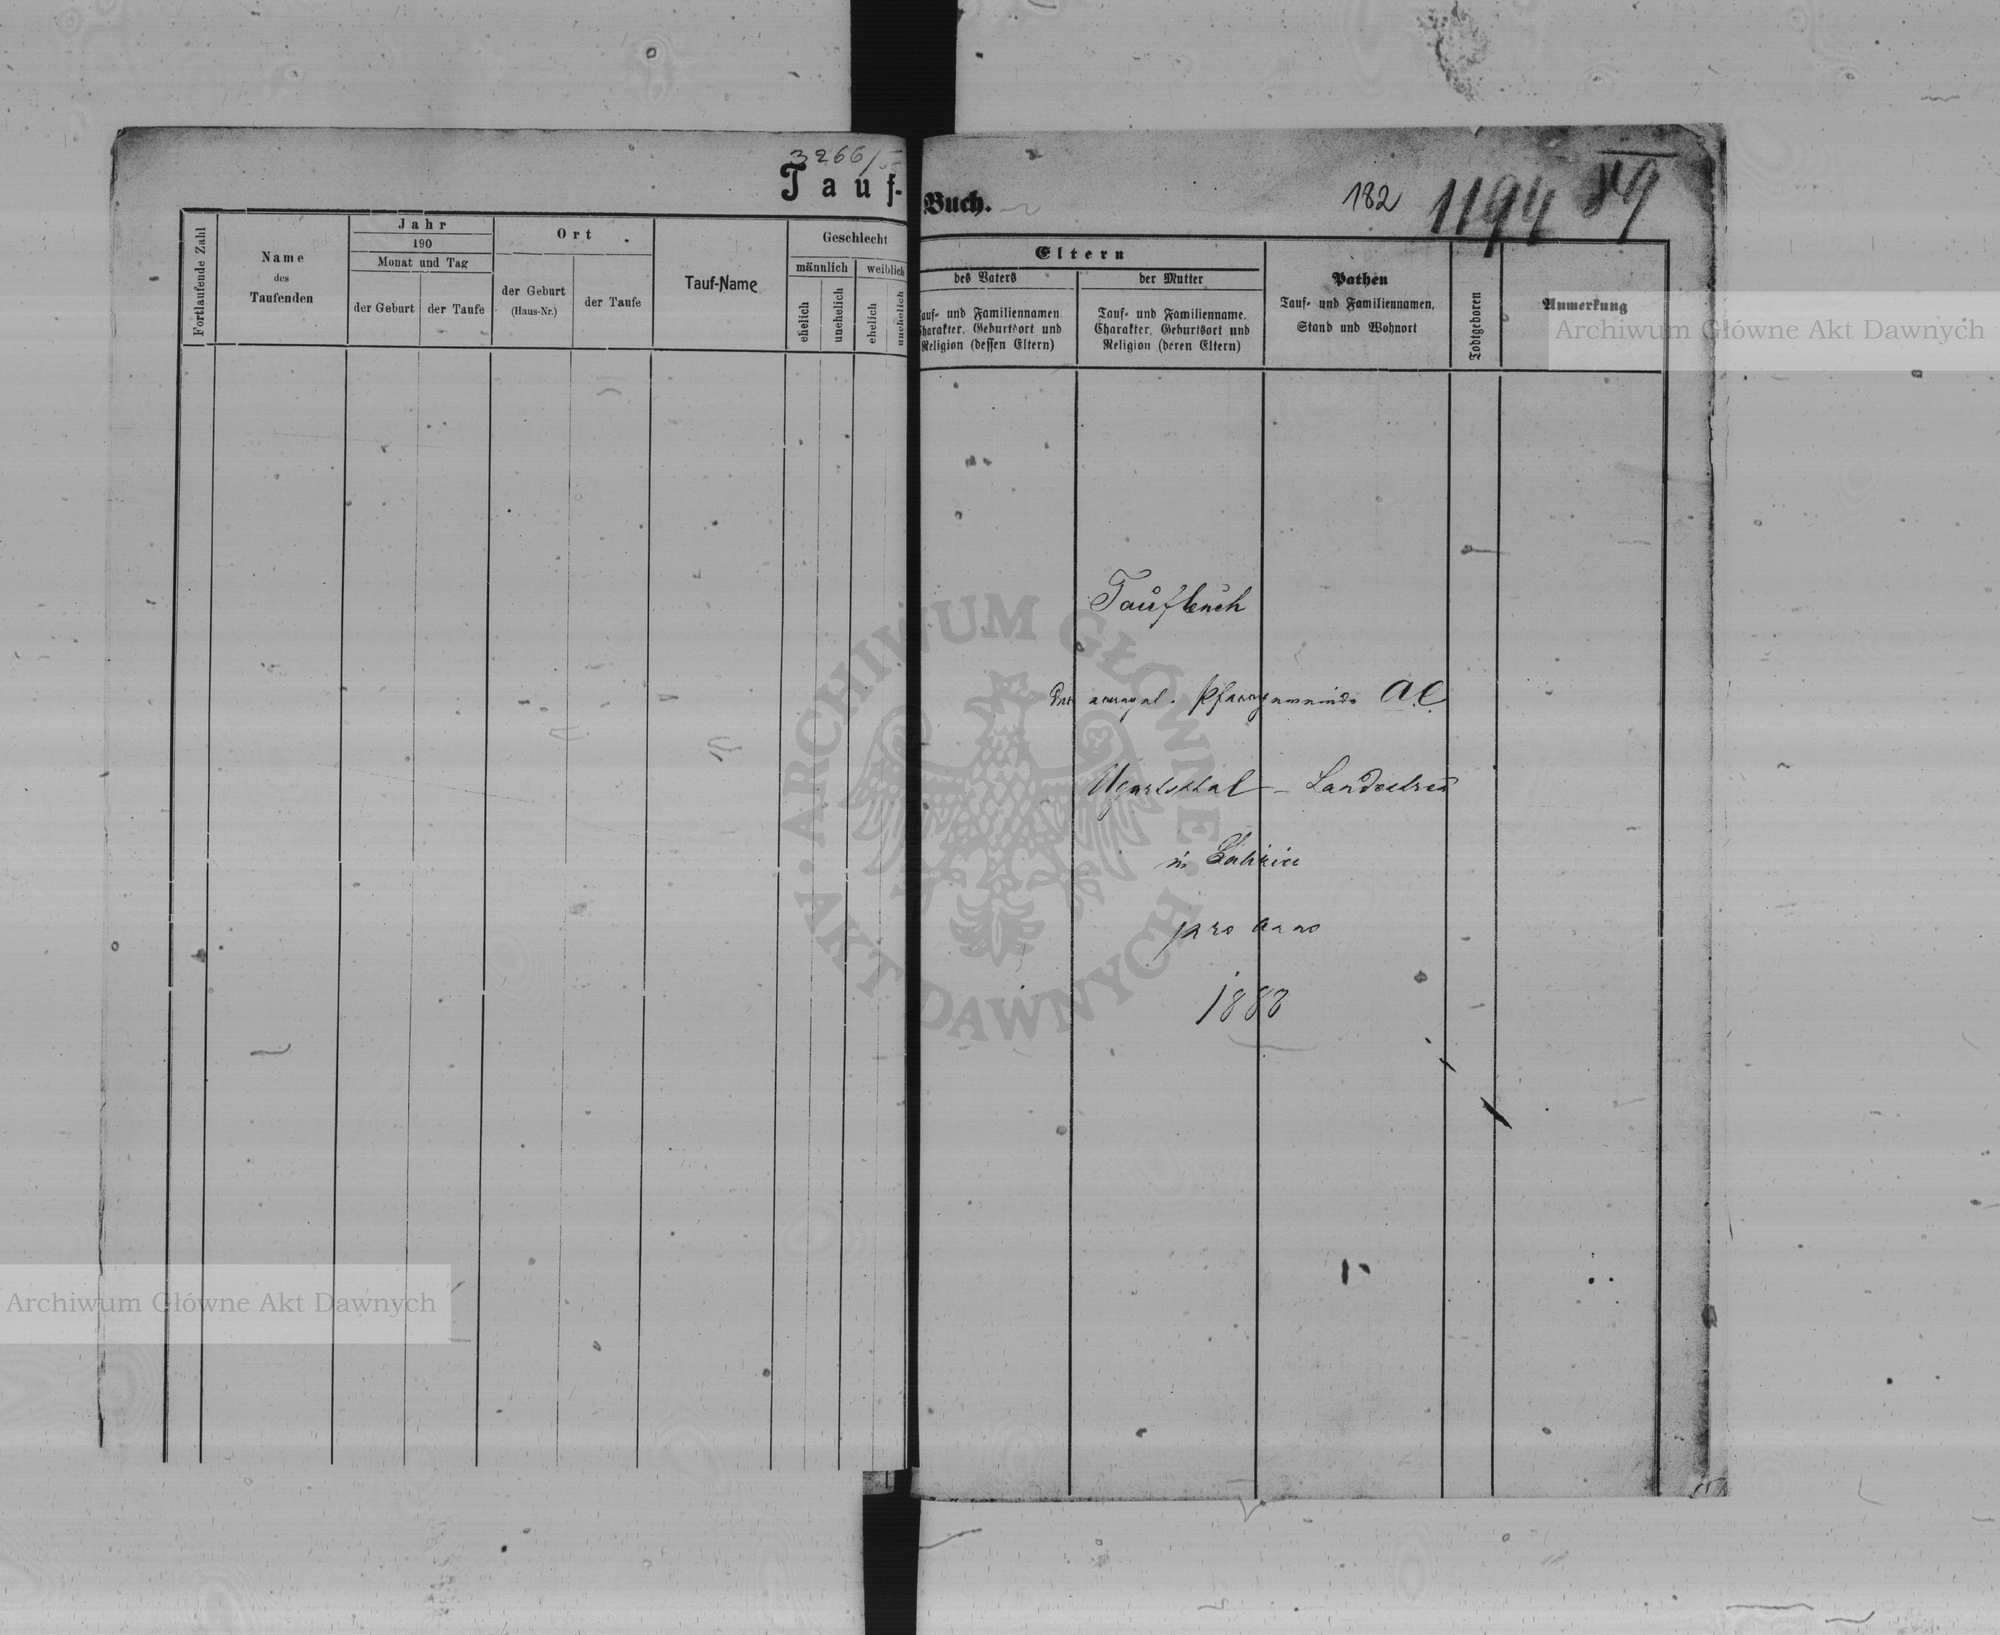 3266/
Tauf-
Fortlaufende Zahl
Name
des
Taufenden
Jahr
190
Monat und Tag
der Geburt
der Taufe
Ort
der Geburt
(Haus-Nr.)
der Taufe
Tauf-Name
Geschlecht
männlich
weiblich
ehelich
unehelich
ehelich
unehelich
Buch.
182
1194
Eltern
des Vaters
Tauf- und Familiennamen
Charakter, Geburtsort und
Religion (dessen Eltern)
der Mutter
Tauf- und Familienname,
Charakter, Geburtsort und
Religion (deren Eltern)
Pathen
Tauf- und Familiennamen,
Stand und Wohnort
Todtgeboren
Anmerkung
Taufbuch
der evangel. Pfarrgemeinde A.C.
Ugartsthal – Landestreu
in Galizien
pro anno
1888
Archiwum Główne Akt Dawnych
Archiwum Główne Akt Dawnych
· ARCHIWUM GŁÓWNE · AKT DAWNYCH